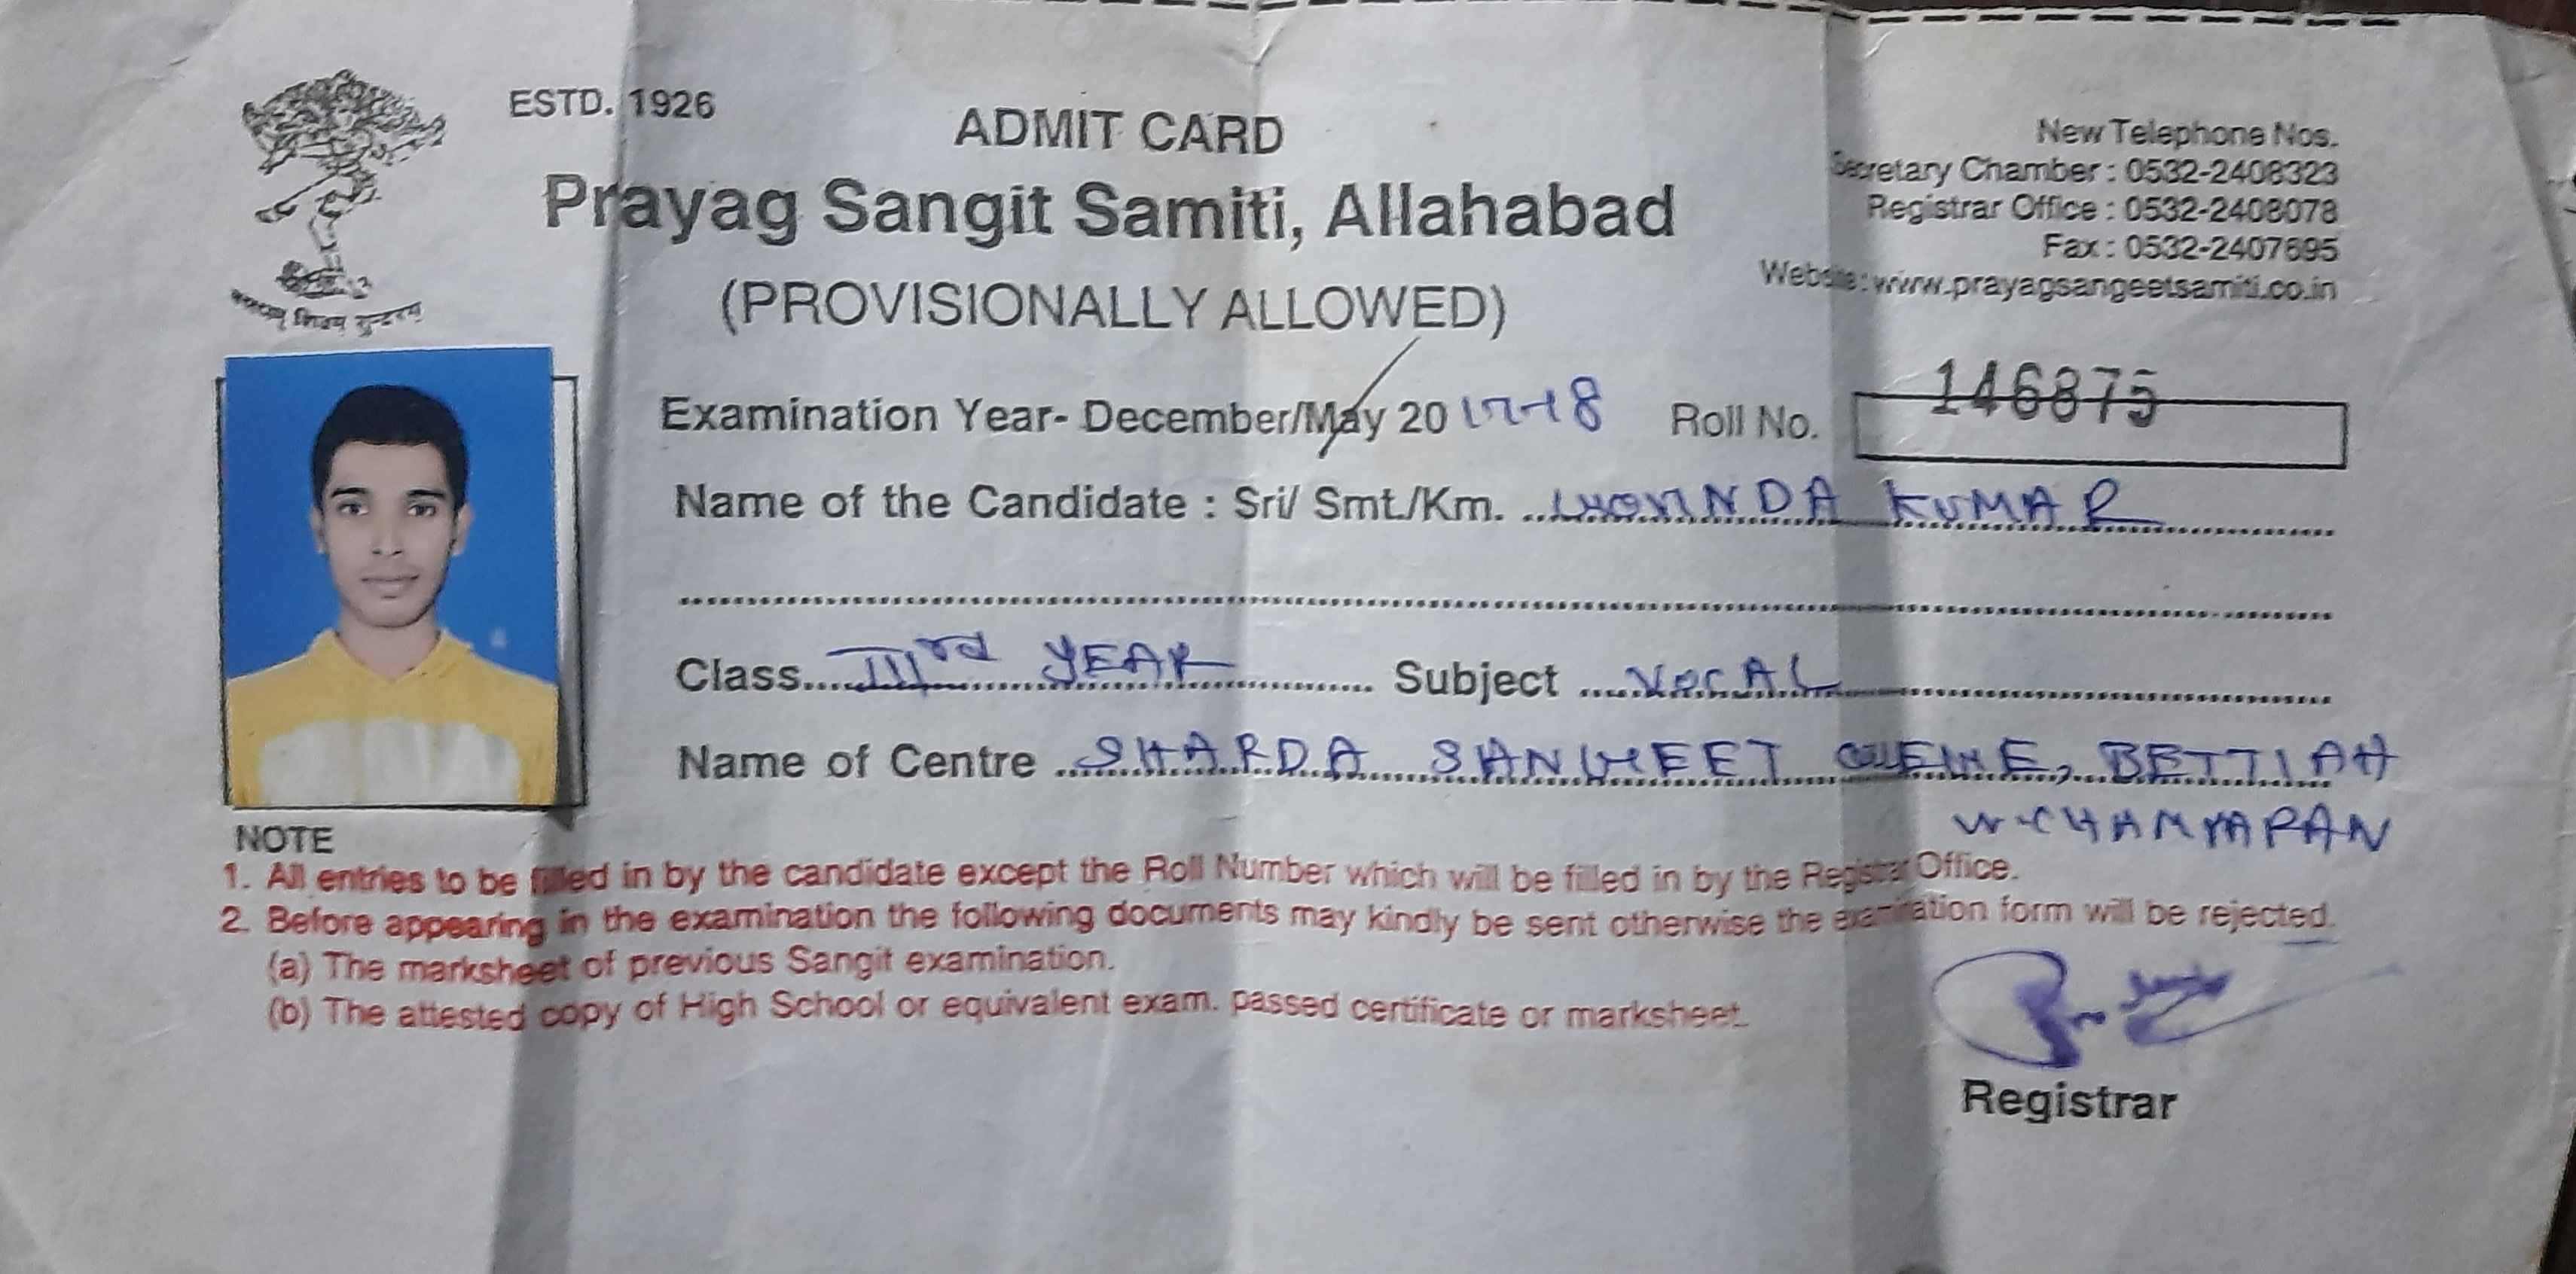 ESTD. 1926
ADMIT CARD
Prayag Sangit Samiti, Allahabad
(PROVISIONALLY ALLOWED)
New Telephone Nos.
Secretary Chamber : 0532-2408323
Registrar Office : 0532-2408078
Fax : 0532-2407695
Website: www.prayagsangeetsamiti.co.in
Examination Year- December/May 20 17-18 Roll No. 146875
Name of the Candidate : Sri/ Smt./Km. GOVINDA KUMAR
Class III rd YEAR Subject VOCAL
Name of Centre SHARDA SANGEET COLLEGE, BETTIAH
W-CHAMPARAN
NOTE
1. All entries to be filled in by the candidate except the Roll Number which will be filled in by the Registrar Office.
2. Before appearing in the examination the following documents may kindly be sent otherwise the examination form will be rejected.
(a) The marksheet of previous Sangit examination.
(b) The attested copy of High School or equivalent exam. passed certificate or marksheet.
Registrar